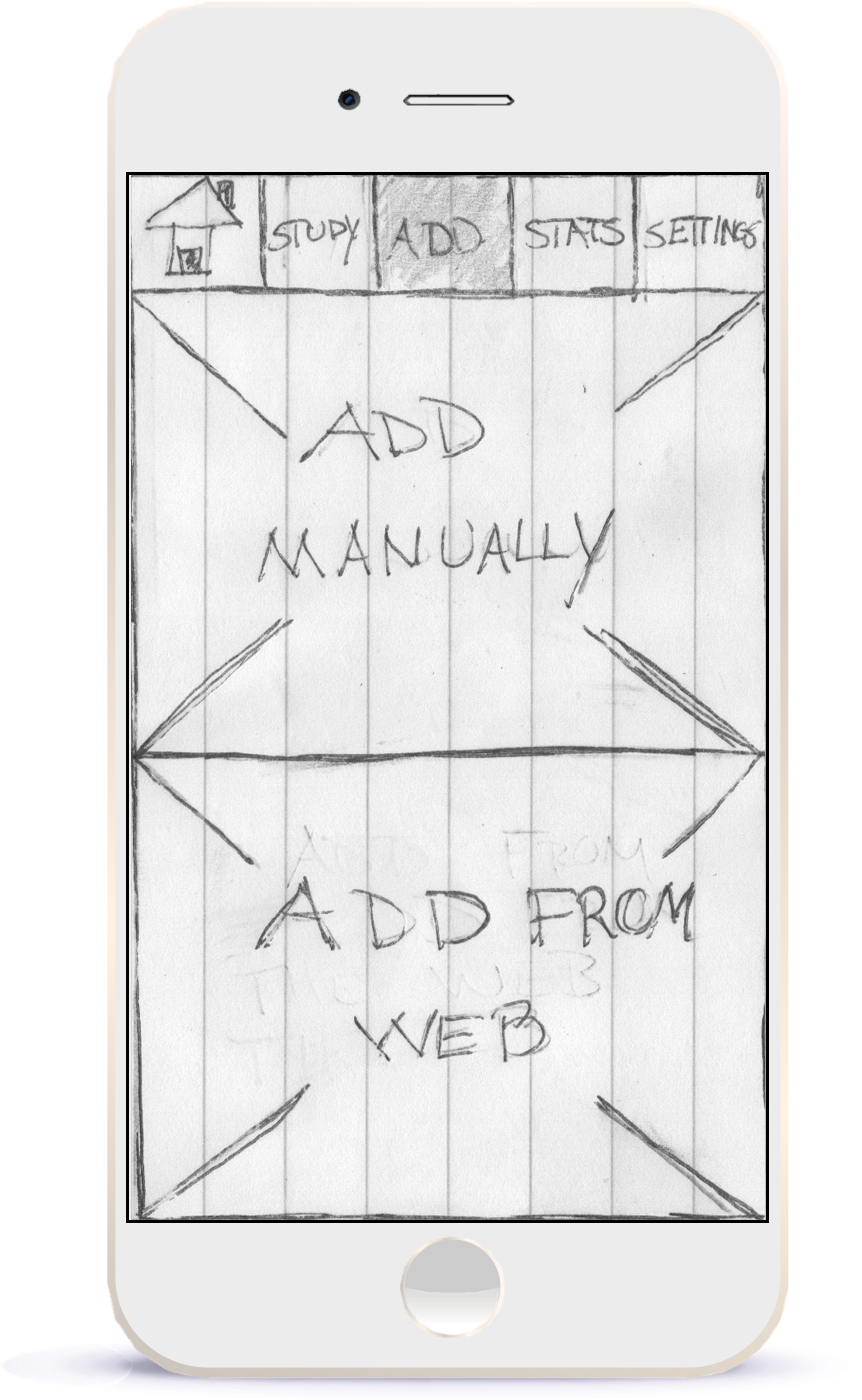 STUDY ADD STATS SETTINGS
ADD
MANUALLY
ADD FROM
WEB